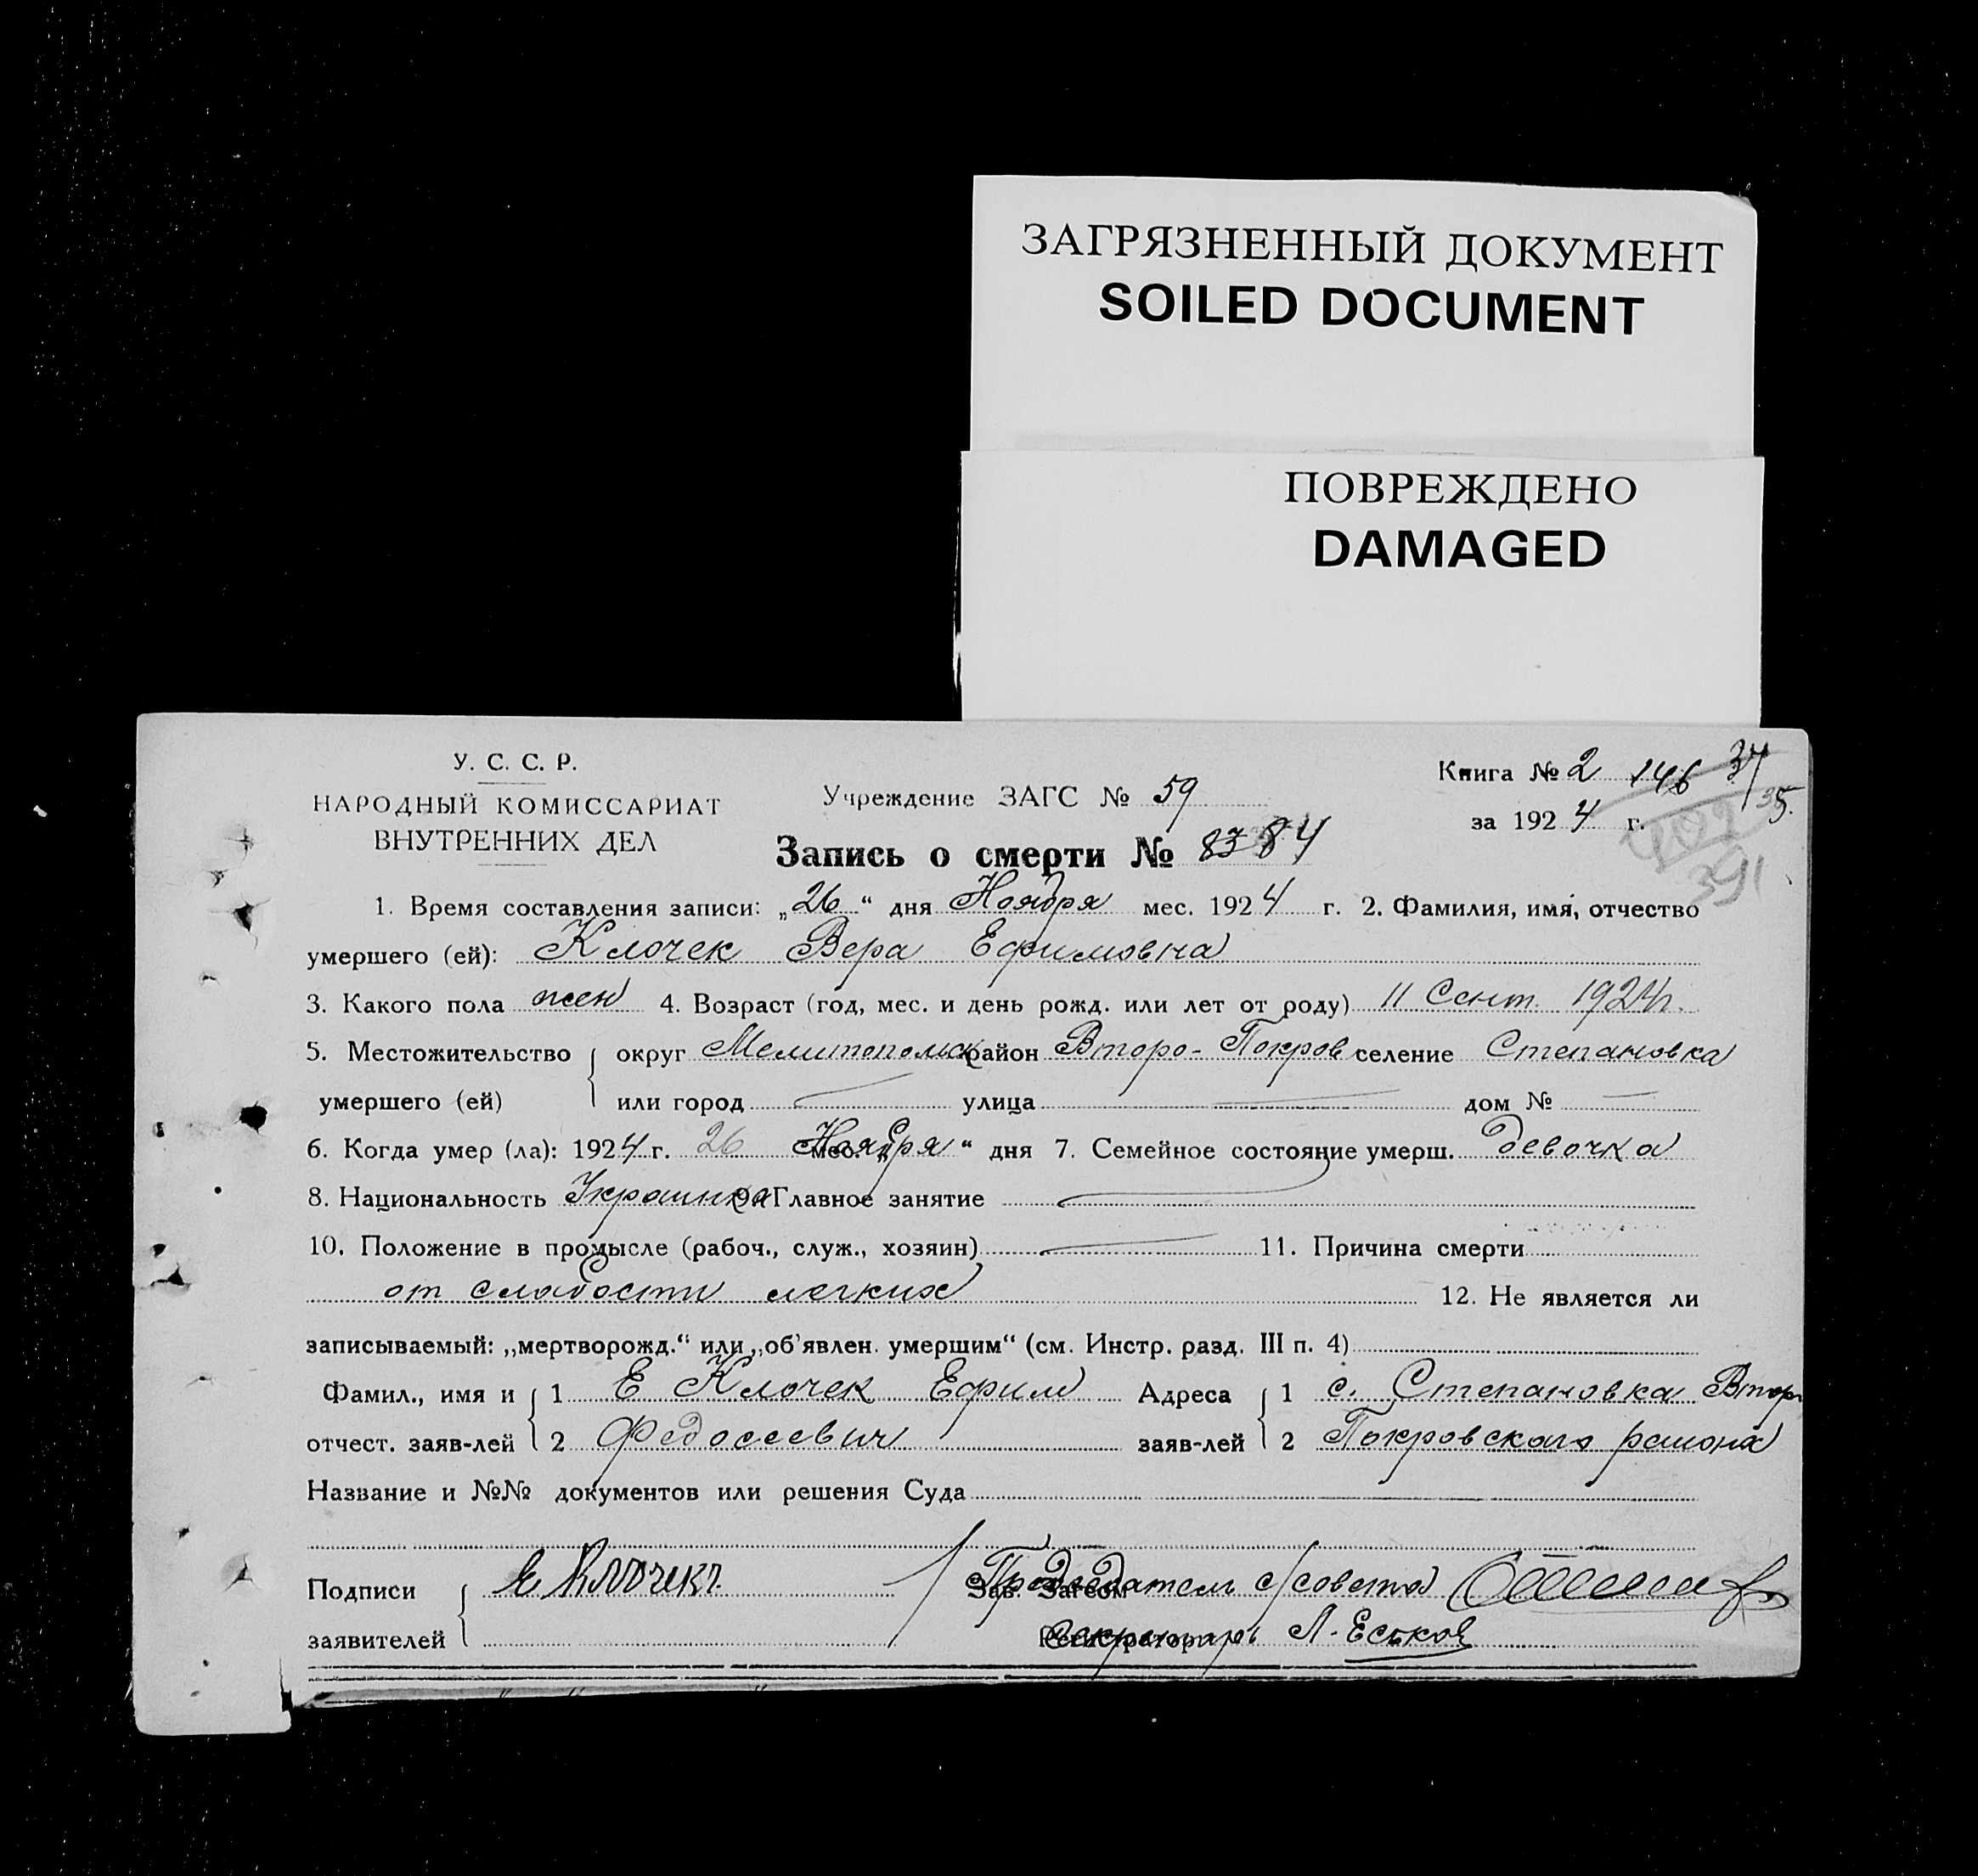 ЗАГРЯЗНЕННЫЙ ДОКУМЕНТ
SOILED DOCUMENT
ПОВРЕЖДЕНО
DAMAGED
У. С. С. Р.
НАРОДНЫЙ КОМИССАРИАТ
ВНУТРЕННИХ ДЕЛ
Учреждение ЗАГС № 59
Книга № 2 146 34
за 1924 г. 35.
391
Запись о смерти № 83 84
1. Время составления записи: „26“ дня Ноября мес. 1924 г. 2. Фамилия, имя, отчество
умершего (ей): Клочек Вера Ефимовна
3. Какого пола жен 4. Возраст (год, мес. и день рожд. или лет от роду) 11 Сент. 1924г.
5. Местожительство округ Мелитопольск район Второ-Покров селение Степановка
умершего (ей) или город — улица — дом № —
6. Когда умер (ла): 1924 г. 26 мес. „Ноября“ дня 7. Семейное состояние умерш. девочка
8. Национальность Украинка 9. Главное занятие —
10. Положение в промысле (рабоч., служ., хозяин) — 11. Причина смерти
от слабости легких 12. Не является ли
записываемый: „мертворожд.“ или „об'явлен. умершим“ (см. Инстр. разд. III п. 4)
Фамил., имя и 1 Е Клочек Ефим Адреса 1 с. Степановка Втор
отчест. заяв-лей 2 Федосеевич заяв-лей 2 Покровского района
Название и №№ документов или решения Суда
Подписи Е Клочекъ Зав. Загсом Председатель с/совета
заявителей Регистратор Секретарь Л. Еськов